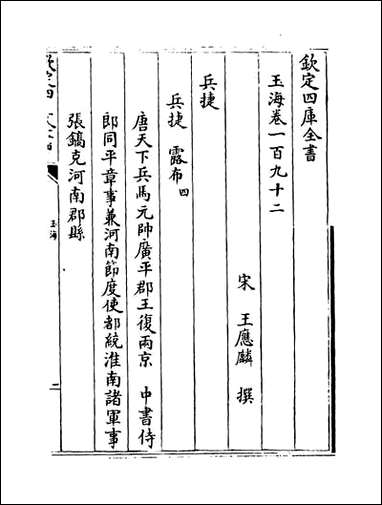 欽定四庫全書
玉海卷一百九十二
宋 王應麟 撰
兵捷
兵捷 露布四
唐天下兵馬元帥廣平郡王復兩京 中書侍
郎同平章事兼河南節度使都統淮南諸軍事
張鎬克河南郡縣
欽定四庫全書
玉海
二